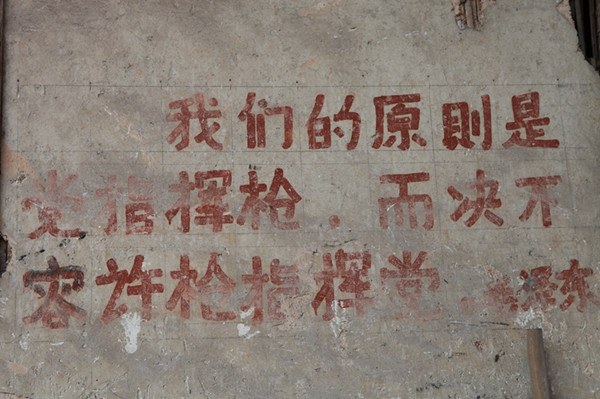 我们的原則是
党指挥枪，而决不
容许枪指挥党。毛泽东